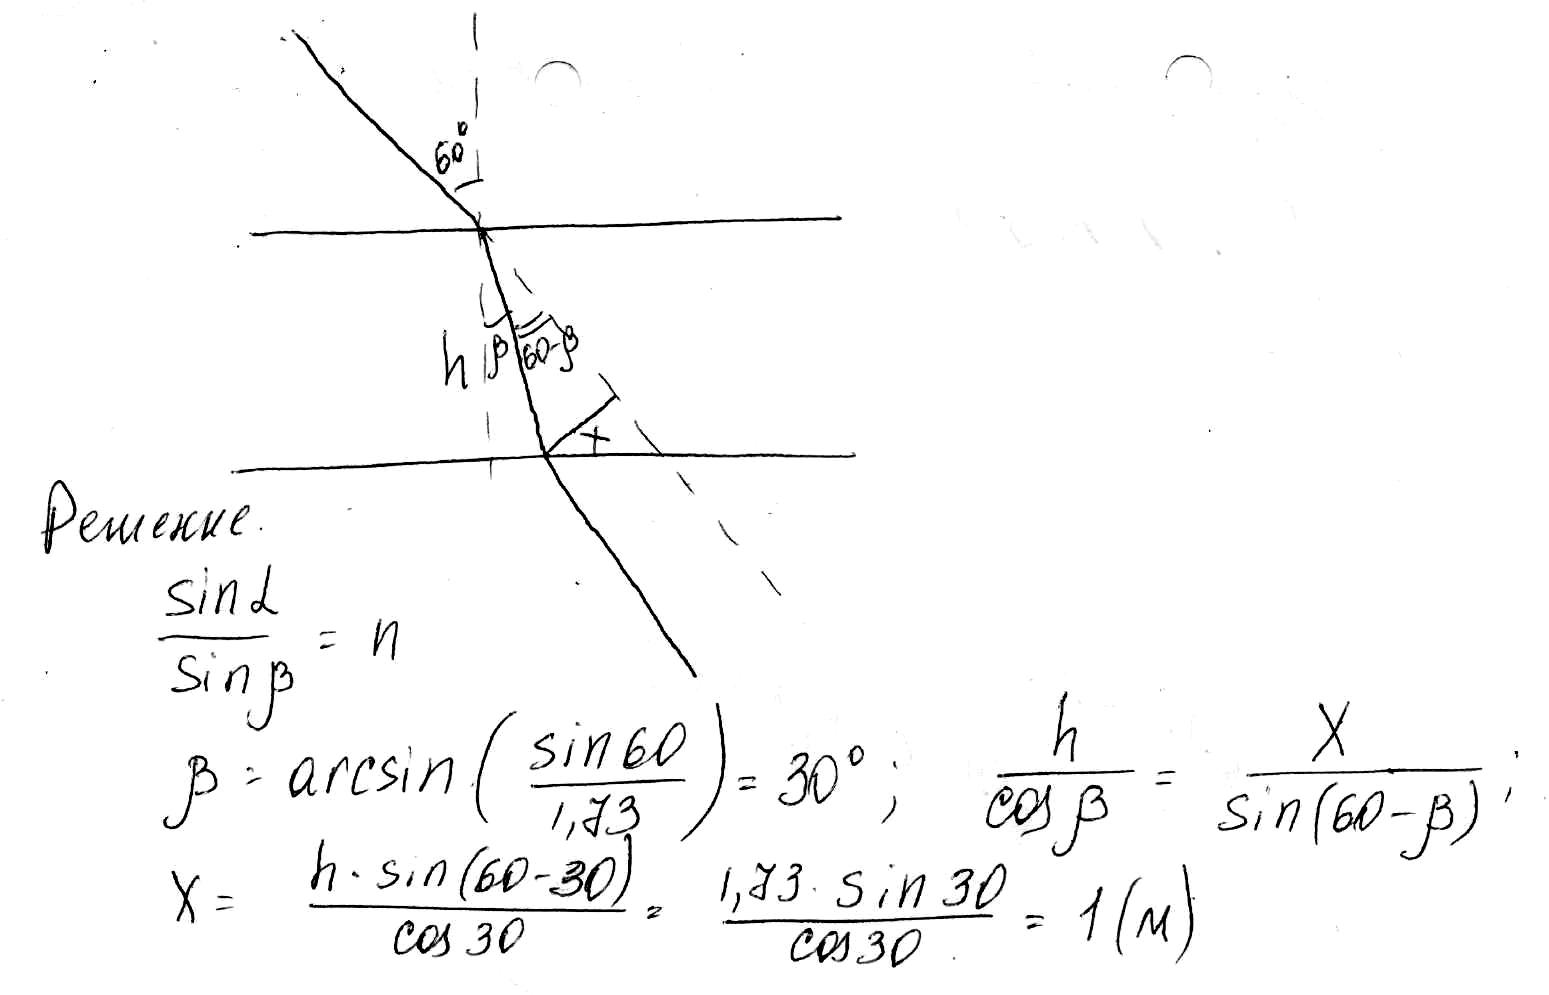 60°
h β 60-β
x
Решение.
sin α / sin β = n
β = arcsin ( sin 60 / 1,73 ) = 30° ; h / cos β = x / sin(60-β) ;
x = h · sin(60-30) / cos 30 = 1,73 · sin 30 / cos 30 = 1 (м)